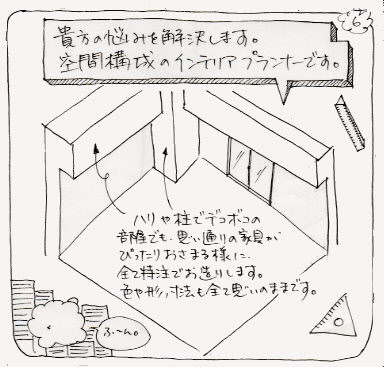 6
貴方の悩みを解決します。
空間構成のインテリアプランナーです。
ハリや柱でデコボコの
部屋でも、思い通りの家具が
ぴったりおさまる様に、
全て特注でお造りします。
色や形、寸法も全て思いのままです。
ふ〜ん。